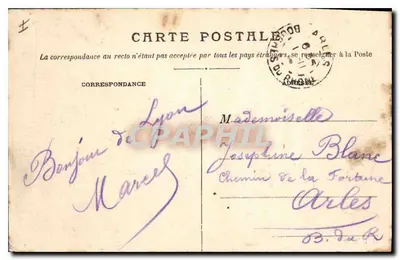 CARTE POSTALE
La correspondance au recto n'étant pas acceptée par tous les pays étrangers, se renseigner à la Poste
CORRESPONDANCE
ARLES
Bonjour de Lyon
Marcel
Mademoiselle
Josephine Blanc
Chemin de la Fortune
Arles
B. du R